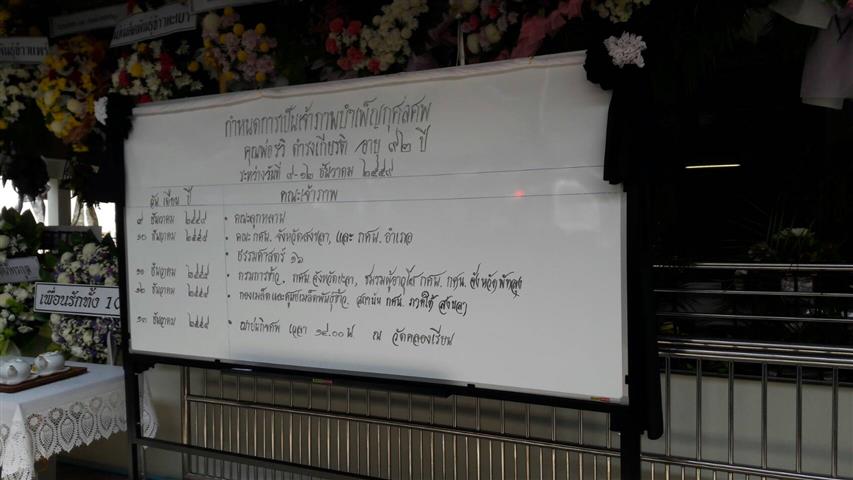 กำหนดการเป็นเจ้าภาพบำเพ็ญกุศลศพ
ดำรงเกียรติ อายุ ๙๒ ปี
ระหว่างวันที่ ๙-๑๒ ธันวาคม ๒๕๕๙
วัน เดือน ปี คณะเจ้าภาพ
๙ ธันวาคม ๒๕๕๙ • คณะลูกหลาน
๑๐ ธันวาคม ๒๕๕๙ • คณะ กศน. จังหวัดสงขลา, และ กศน. อำเภอ
• ธรรมศาสตร์ ๑๖
๑๑ ธันวาคม ๒๕๕๙ • กรมการข้าว, กศน. จังหวัด กศน. กศน. จังหวัดพัทลุง
๑๒ ธันวาคม ๒๕๕๙ • กองเมล็ดและศูนย์เมล็ดพันธุ์ข้าว กศน. ภาคใต้ สงขลา)
๑๓ ธันวาคม ๒๕๕๙ • ฌาปนกิจศพ เวลา ๑๔.๐๐ น. ณ วัดคลองเรียน
เพื่อนรักทั้ง 10